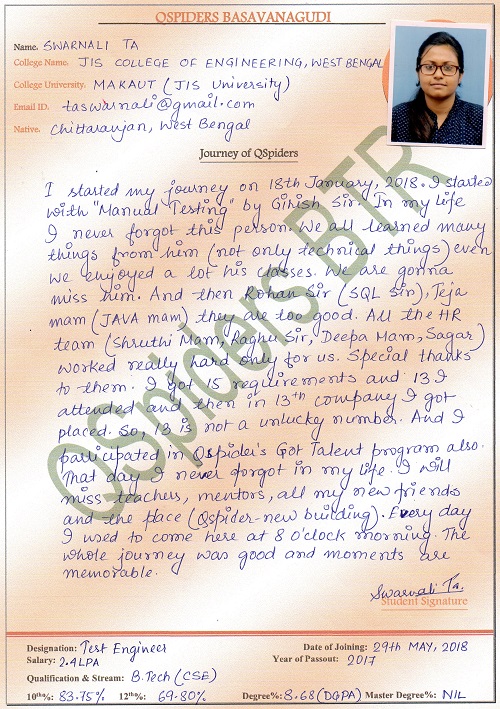 QSPIDERS BASAVANAGUDI
Name. SWARNALI TA
College Name: JIS COLLEGE OF ENGINEERING, WEST BENGAL
College University. MAKAUT (JIS University)
Email ID. taswarnali@gmail.com
Native. Chittaranjan, West Bengal
Journey of QSpiders
I started my journey on 18th January, 2018. I started
with "Manual Testing" by Girish Sir. In my life
I never forgot this person. We all learned many
things from him (not only technical things) even
we enjoyed a lot his classes. We are gonna
miss him. And then Rohan Sir (SQL Sir), Teja
mam (JAVA mam) they are too good. All the HR
team (Shruthi Mam, Raghu Sir, Deepa Mam, Sagar)
worked really hard only for us. Special thanks
to them. I got 15 requirements and 13 I
attended and then in 13th company I got
placed. So, 13 is not a unlucky number. And I
participated in Qspider's Got Talent program also.
That day I never forgot in my life. I will
miss teachers, mentors, all my new friends
and the place (Qspider-new building). Every day
I used to come here at 8 o'clock morning. The
whole journey was good and moments are
memorable.
QSpiders BTR
Swarnali Ta.
Student Signature
Designation: Test Engineer
Date of Joining: 29th MAY, 2018
Salary: 2.4LPA
Year of Passout: 2017
Qualification & Stream: B.Tech (CSE)
10th%: 83.75% 12th%: 69.80% Degree%: 8.68 (DGPA) Master Degree%: NIL